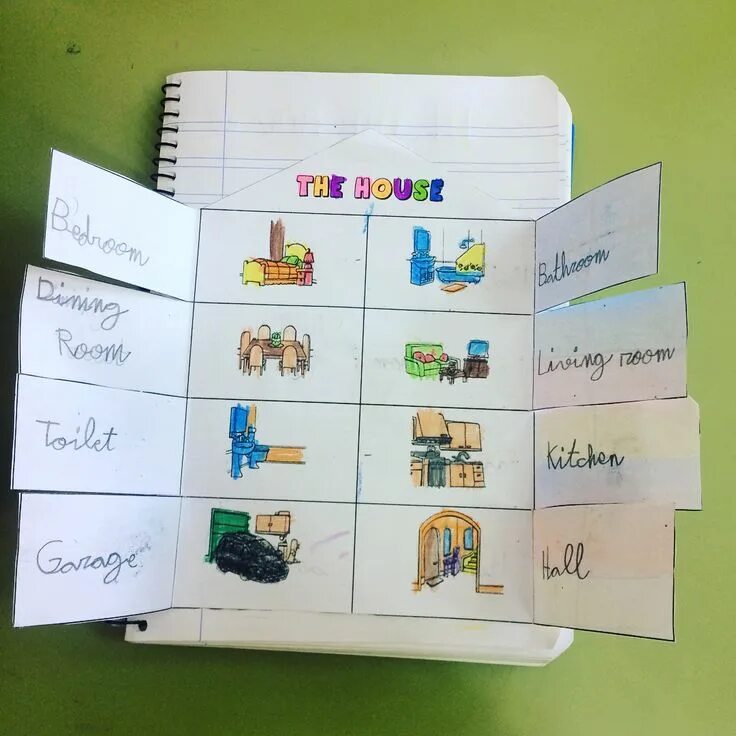 THE HOUSE
Bedroom
Bathroom
Dining
Room
Living room
Toilet
Kitchen
Garage
Hall